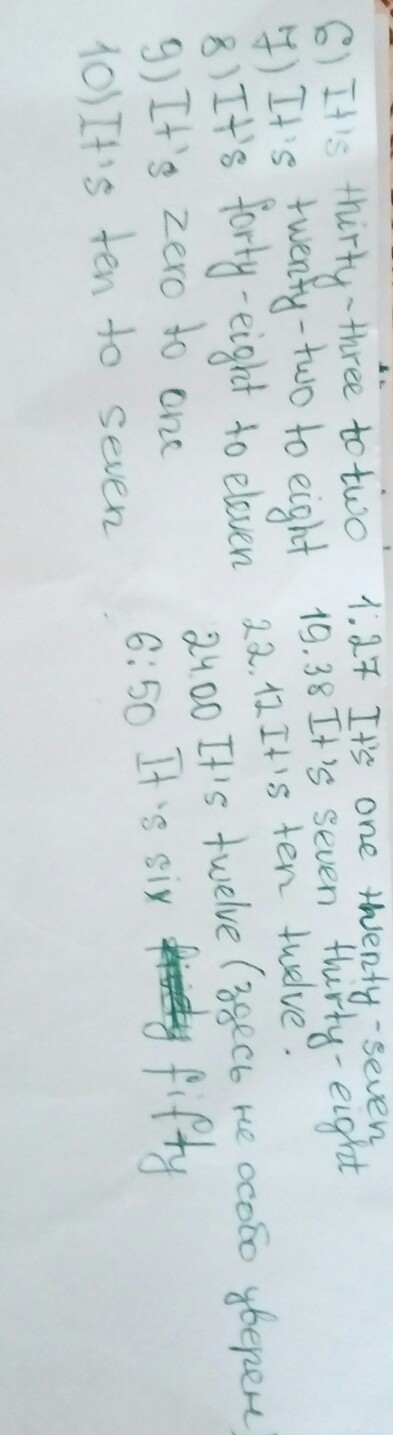 6) It's thirty-three to two 1:27 It's one twenty-seven
7) It's twenty-two to eight 19.38 It's seven thirty-eight
8) It's forty-eight to eleven 22.12 It's ten twelve.
9) It's zero to one 24.00 It's twelve (здесь не особо уверен)
10) It's ten to seven 6:50 It's six fifty